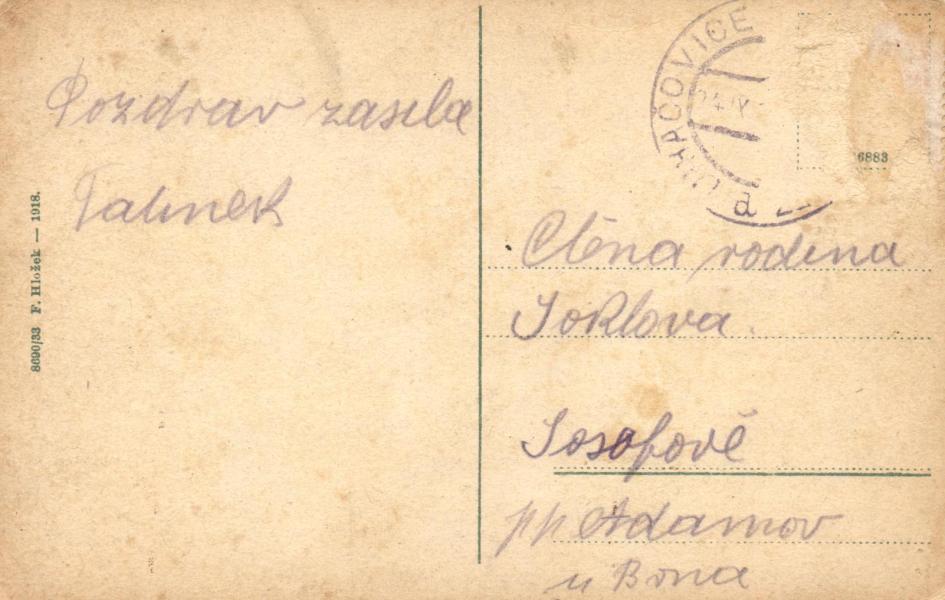 Pozdrav zasila
8690/33 F. Hložek — 1918.
UHAČOVICE
24.IX
a
6883
Ctěna rodina
Soklova.
Josefově
pp Adamov
u Brna